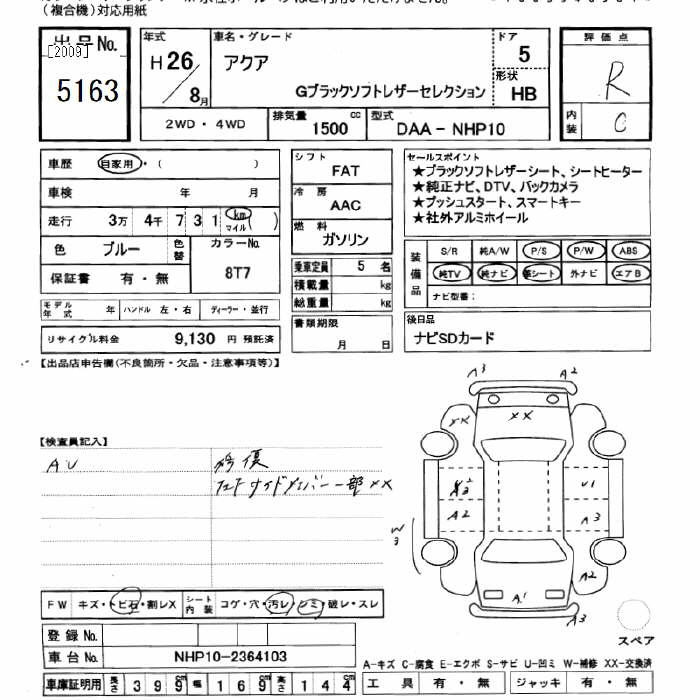 (複合機)対応用紙
出品No.
[2009]
5163
年式
H26/8月
車名・グレード
アクア
Gブラックソフトレザーセレクション
ドア
5
形状
HB
評価点
R
内装
C
2WD・4WD
排気量
1500 cc
型式
DAA-NHP10
車歴
自家用・( )
車検 年 月
走行 3万 4千 7 3 1 km マイル ( )
色 ブルー
色替
カラーNo.
8T7
保証書 有・無
モデル年式 年
ハンドル 左・右
ディーラー・並行
リサイクル料金 9,130 円 預託済
シフト
FAT
冷房
AAC
燃料
ガソリン
乗車定員 5 名
積載量 kg
総重量 kg
書類期限
月 日
セールスポイント
★ブラックソフトレザーシート、シートヒーター
★純正ナビ、DTV、バックカメラ
★プッシュスタート、スマートキー
★社外アルミホイール
装備品
S/R 純A/W P/S P/W ABS
純TV 純ナビ 革シート 外ナビ エアB
ナビ型番:
後日品
ナビSDカード
【出品店申告欄(不良箇所・欠品・注意事項等)】
【検査員記入】
AU
修復
フロトサイドメンバー一部××
A3
A2
XX
XX
A2
U1
A3
W3
A2
A1
A3
スペア
FW キズ・トビ石・割レX
シート内装 コゲ・穴・汚レ・シミ・破レ・スレ
登録No.
車台No. NHP10-2364103
車庫証明用 長さ 399cm 幅 169cm 高さ 144cm
A-キズ C-腐食 E-エクボ S-サビ U-凹ミ W-補修 XX-交換済
工具 有・無 ジャッキ 有・無